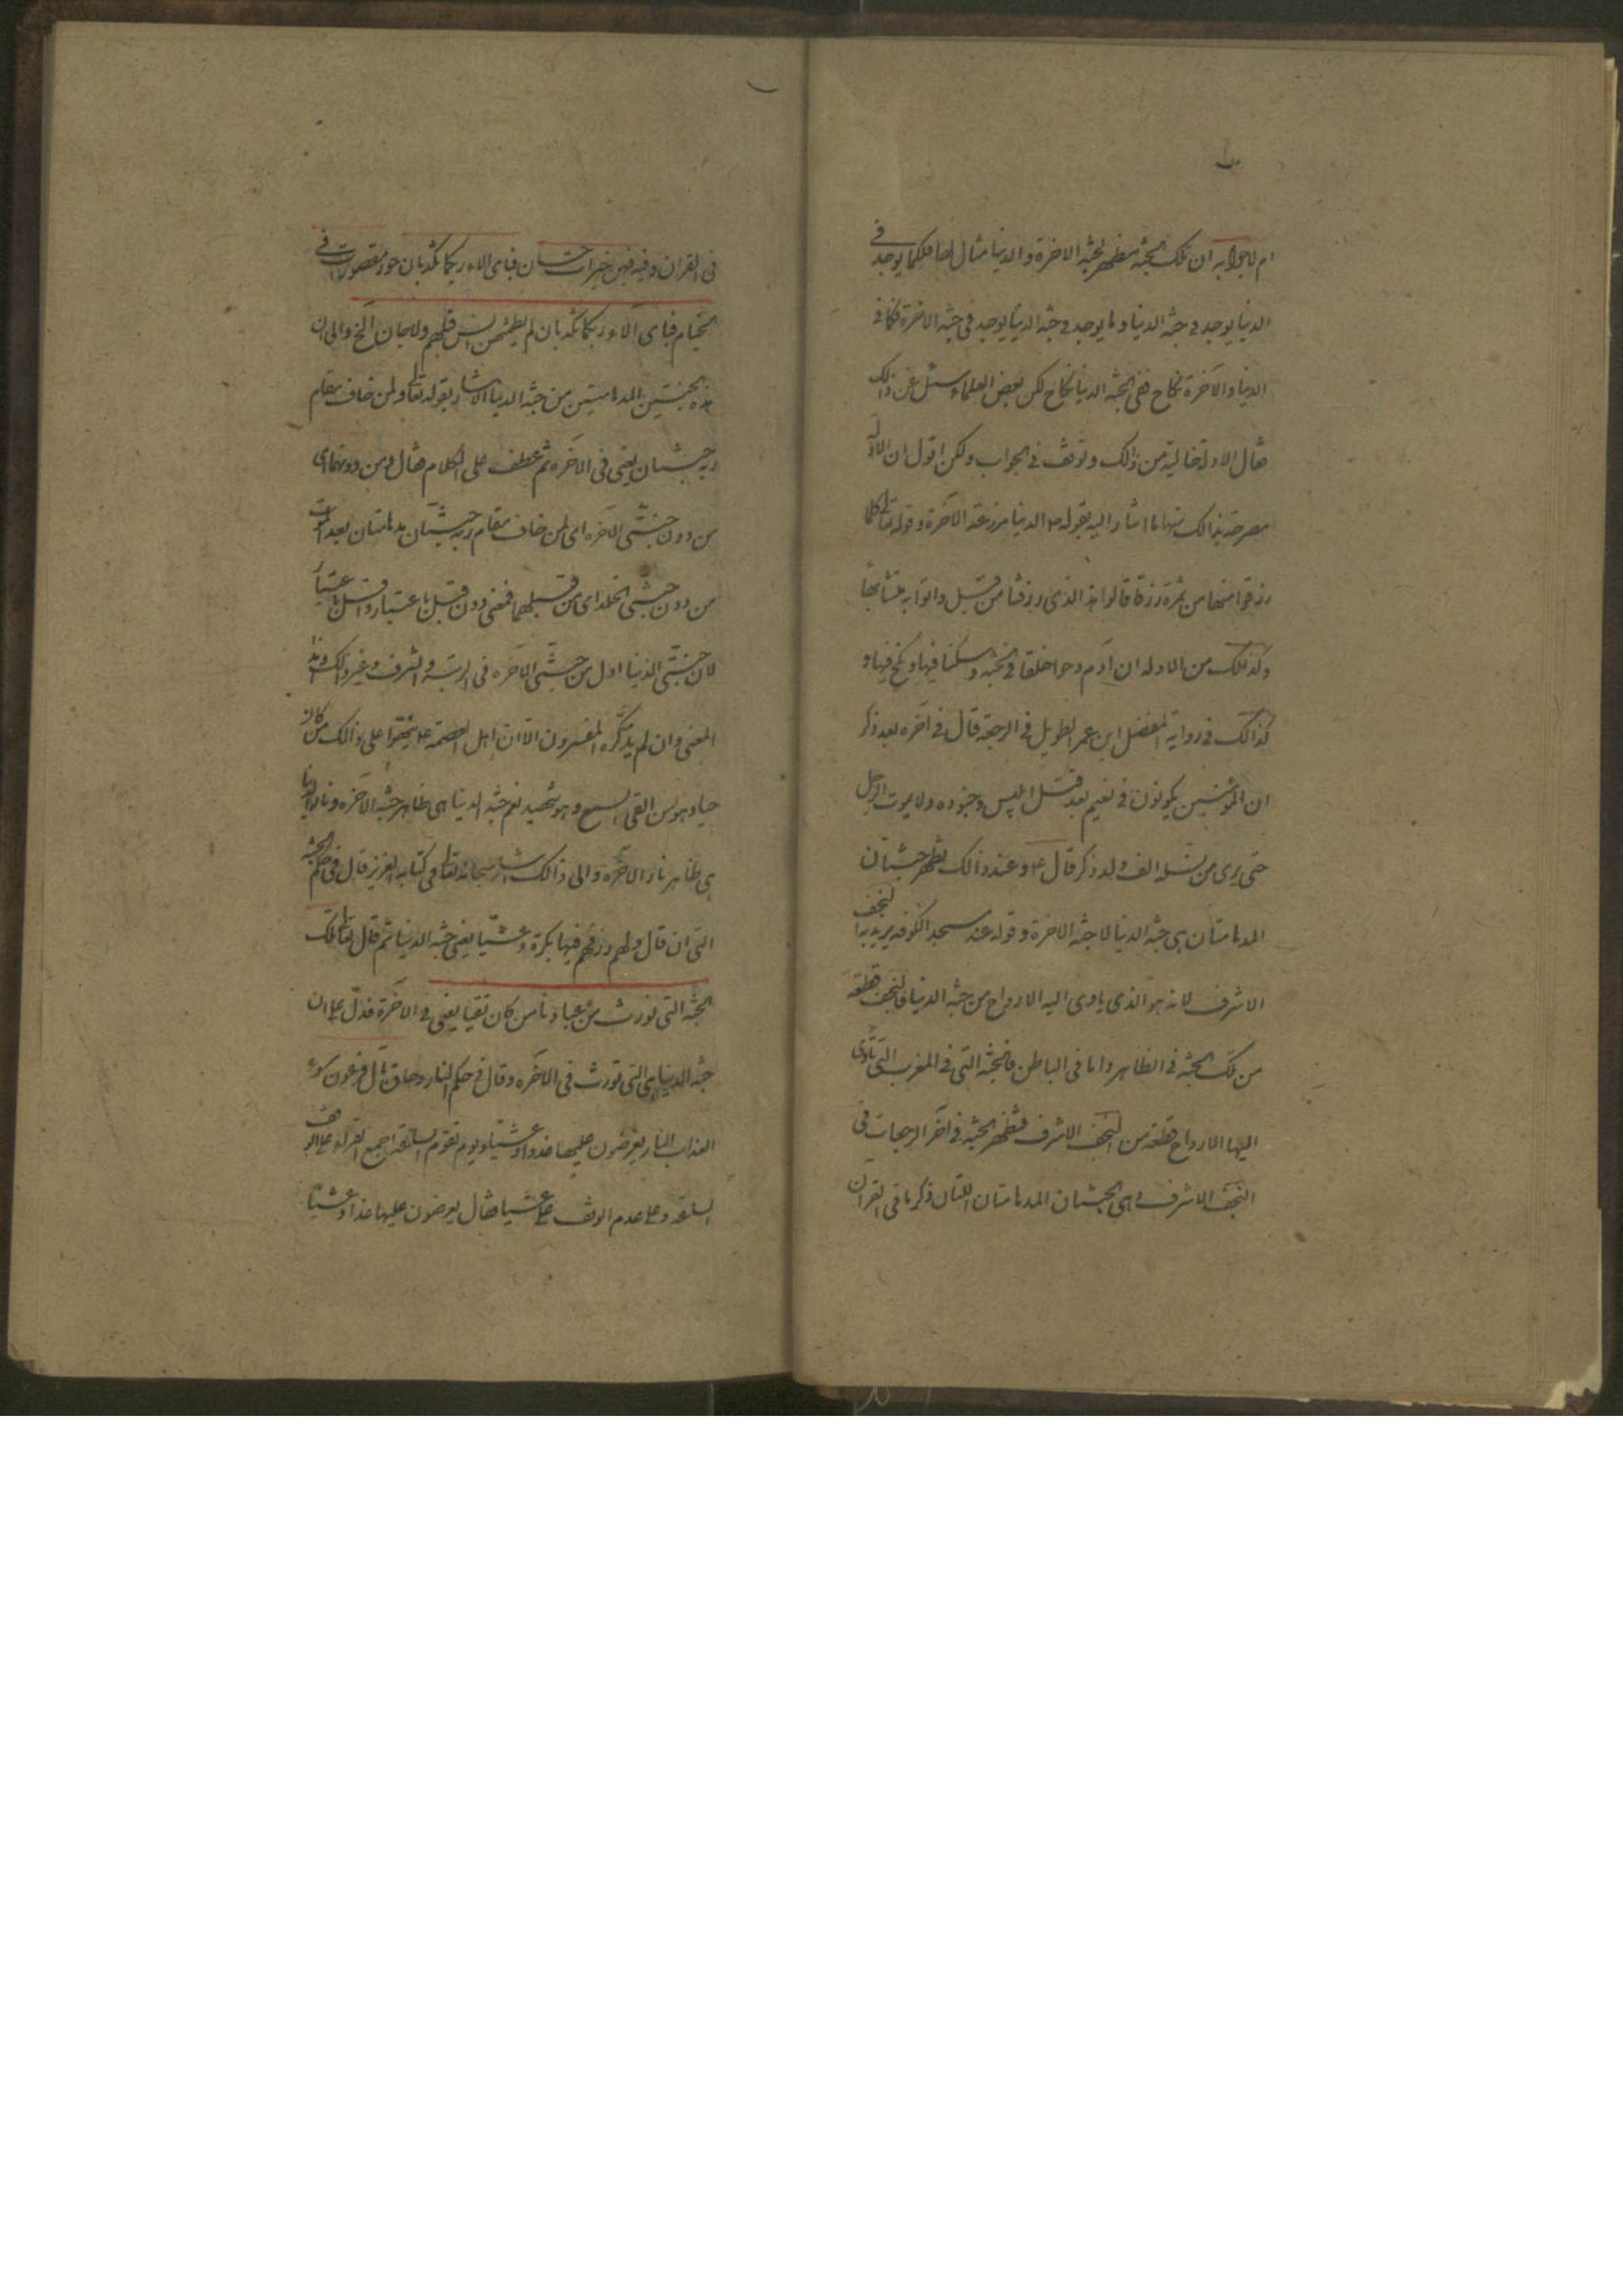 ام لا جوابه ان تلك الجنة مظهر لجنة الاخرة والدنيا مثال لها فلكما يوجد في
الدنيا يوجد في جنة الدنيا وما يوجد في جنة الدنيا يوجد في جنة الاخرة فكما في
الدنيا والآخرة نكاح ففي الجنة الدنيا نكاح لكن بعض العلماء سئل عن ذالك
فقال الادلة خالية من ذالك وتوقف في الجواب ولكن اقول ان الادلة
مصرحة بذالك منها ما اشار اليه بقوله ع الدنيا مزرعة الآخرة وقوله تعالى كلما
رزقوا منها من ثمرة رزقا قالوا هذا الذي رزقنا من قبل واتوا به متشابها
وكذالك من الادلة ان آدم وحوا خلقا في الجنة وسكنا فيها ونكح فيها و
كذالك في رواية المفضل ابن عمر الطويل في الرجعة قال في آخره بعد ذكر
ان المؤمنين يكونون في نعيم بعد قتل ابليس وجنوده ولا يموت الرجل
حتى يرى من نسله الف ولد ذكر قال ع وعند ذالك تظهر جنتان
المدهامتان هي جنة الدنيا لا جنة الاخرة وقوله عند مسجد الكوفة يريد به النجف
الاشرف لانه هو الذي ياوى اليه الارواح من جنة الدنيا فالنجف قطعة
من تلك الجنة في الظاهر واما في الباطن فالجنة التي في المغرب التي تأوى
اليها الارواح قطعة من النجف الاشرف فتظهر الجنة في آخر الرجعات في
النجف الاشرف وهي الجنتان المدهامتان اللتان ذكرنا في القرآن
في القران وفيه فيهن خيرات حسان فباى الاء ربكما تكذبان حور مقصورات في
الخيام فباى آلاء ربكما تكذبان لم يطمثهن انس قبلهم ولا جان الخ والى ان
هذه الجنتين المدهامتين من جنة الدنيا الاشارة بقوله تعالى ولمن خاف مقام
ربه جنتان يعني في الاخره ثم عطف على الكلام فقال ومن دونهما اى
من دون جنتى الآخره اى لمن خاف مقام ربه جنتان مدهامتان بعد الموت
من دون جنتى الخلد اى من قبلهما فمعنى دون قبل باعتبار واسفل باعتبار
لان جنتى الدنيا ادون من جنتى الآخره في الرتبة والشرف وغير ذالك وهذا
المعنى وان لم يذكره المفسرون الا ان اهل العصمة ع نبهوا على ذالك من كان
حيا وهو من القى السمع وهو شهيد نعم جنة الدنيا هي ظاهر جنة الآخره ونار الدنيا
هي ظاهر نار الآخره والى ذالك اشار سبحانه تعالى في كتابه العزيز قال في حكم الجنة
التي ان قال ولهم رزقهم فيها بكرة وعشيا يعني جنة الدنيا ثم قال تعالى تلك
الجنة التي نورث من عبادنا من كان تقيا يعني في الآخرة فدل على ان
جنة الدنيا هي التي تورث في الآخره وقال في حكم النار وحاق بآل فرعون سوء
العذاب النار يعرضون عليها غدوا وعشيا ويوم تقوم الساعة اجمع القراء على الوقف
الساعة وعلى عدم الوقف على عشيا فقال يعرضون عليها غدا وعشيا